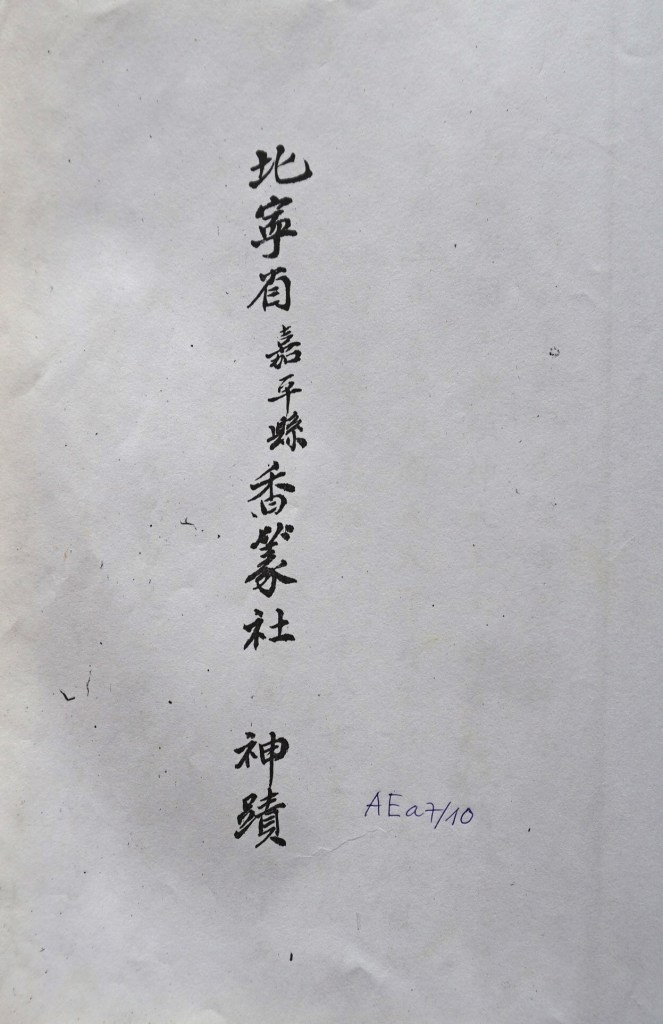 北寧省嘉平縣香篆社 神蹟
AEa7/10